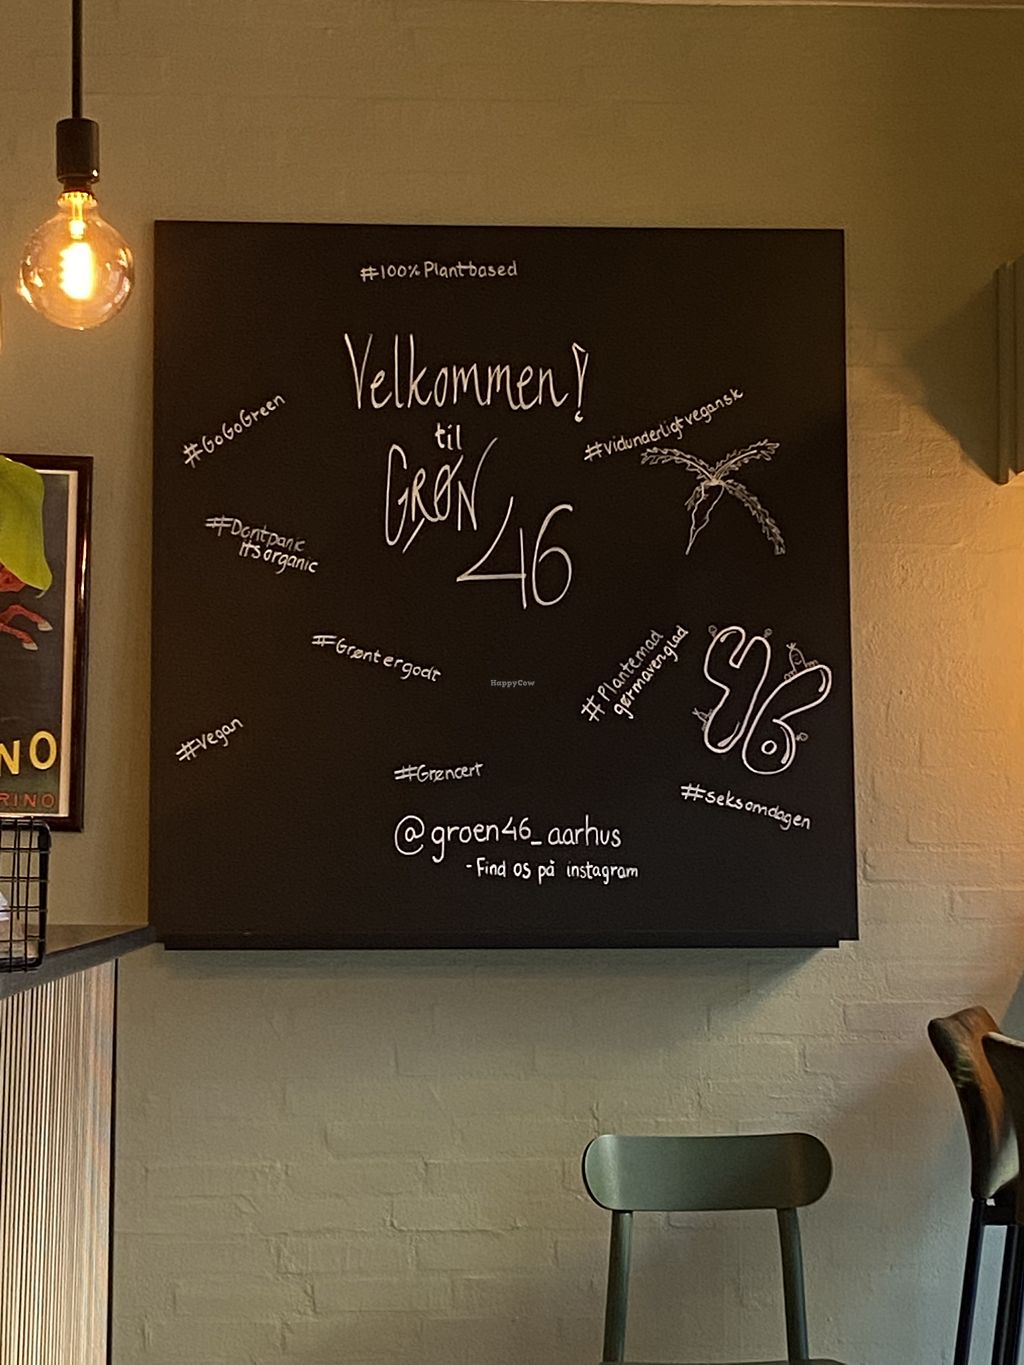 #100% Plantbased
Velkommen!
til
GRØN
46
#GoGoGreen
#vidunderligtvegansk
#Dontpanic
itsorganic
#Grøntergodt
#Plantemad
gørmavenglad
46
#Vegan
#Grøncert
#seksomdagen
@groen46_aarhus
- Find os på instagram
HappyCow
NO
RINO